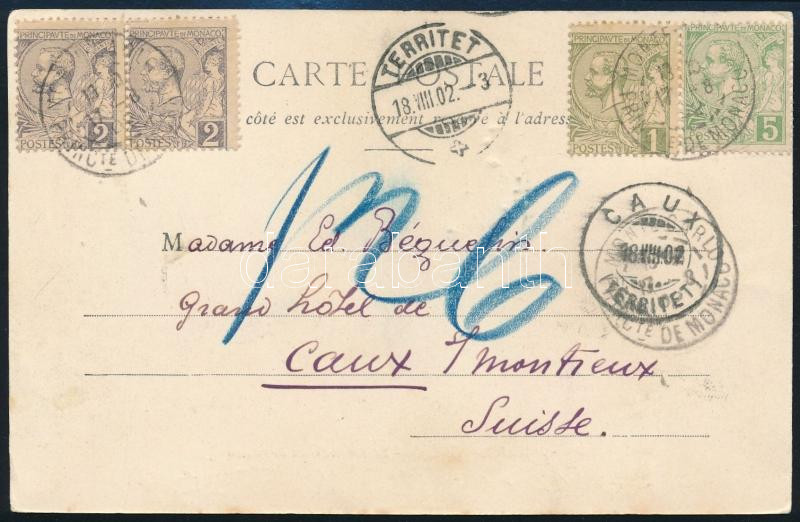 PRINCIPAUTÉ DE MONACO PRINCIPAUTÉ DE MONACO
POSTES 2 POSTES 2
TERRITET
18.VIII.02. 3
PRINCIPAUTÉ DE MONACO
POSTES 1 5
CARTE POSTALE
côté est exclusivement à l'adresse
CAUX
18.VIII.02
(TERRITET)
PTE DE MONACO
Madame Ed. Béguelin
darabanth
Grand hôtel de
Caux s/montreux
Suisse.